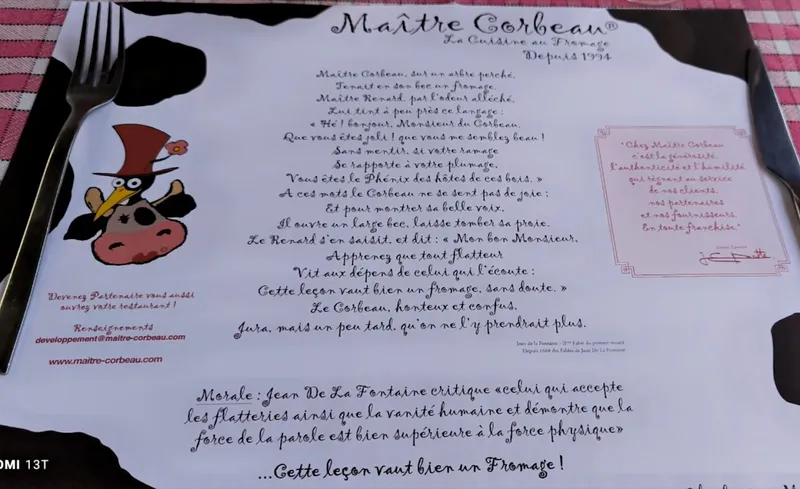 Maître Corbeau®
La Cuisine au Fromage
Depuis 1994
Maître Corbeau, sur un arbre perché,
Tenait en son bec un fromage.
Maître Renard, par l'odeur alléché,
Lui tint à peu près ce langage :
« Hé ! bonjour, Monsieur du Corbeau,
Que vous êtes joli ! que vous me semblez beau !
Sans mentir, si votre ramage
Se rapporte à votre plumage,
Vous êtes le Phénix des hôtes de ces bois. »
A ces mots le Corbeau ne se sent pas de joie ;
Et pour montrer sa belle voix,
Il ouvre un large bec, laisse tomber sa proie.
Le Renard s'en saisit, et dit : « Mon bon Monsieur,
Apprenez que tout flatteur
Vit aux dépens de celui qui l'écoute :
Cette leçon vaut bien un fromage, sans doute. »
Le Corbeau, honteux et confus,
Jura, mais un peu tard, qu'on ne l'y prendrait plus.
Jean de la Fontaine -
Depuis 1668 des Fables de Jean De La Fontaine
"Chez Maître Corbeau
c'est la générosité,
l'authenticité et l'humilité
qui règnent au service
de nos clients,
nos partenaires
et nos fournisseurs.
En toute franchise."
Devenez Partenaire vous aussi
ouvrez votre restaurant !
Renseignements
developpement@maitre-corbeau.com
www.maitre-corbeau.com
Morale : Jean De La Fontaine critique «celui qui accepte
les flatteries ainsi que la vanité humaine et démontre que la
force de la parole est bien supérieure à la force physique»
...Cette leçon vaut bien un Fromage !
OMI 13T